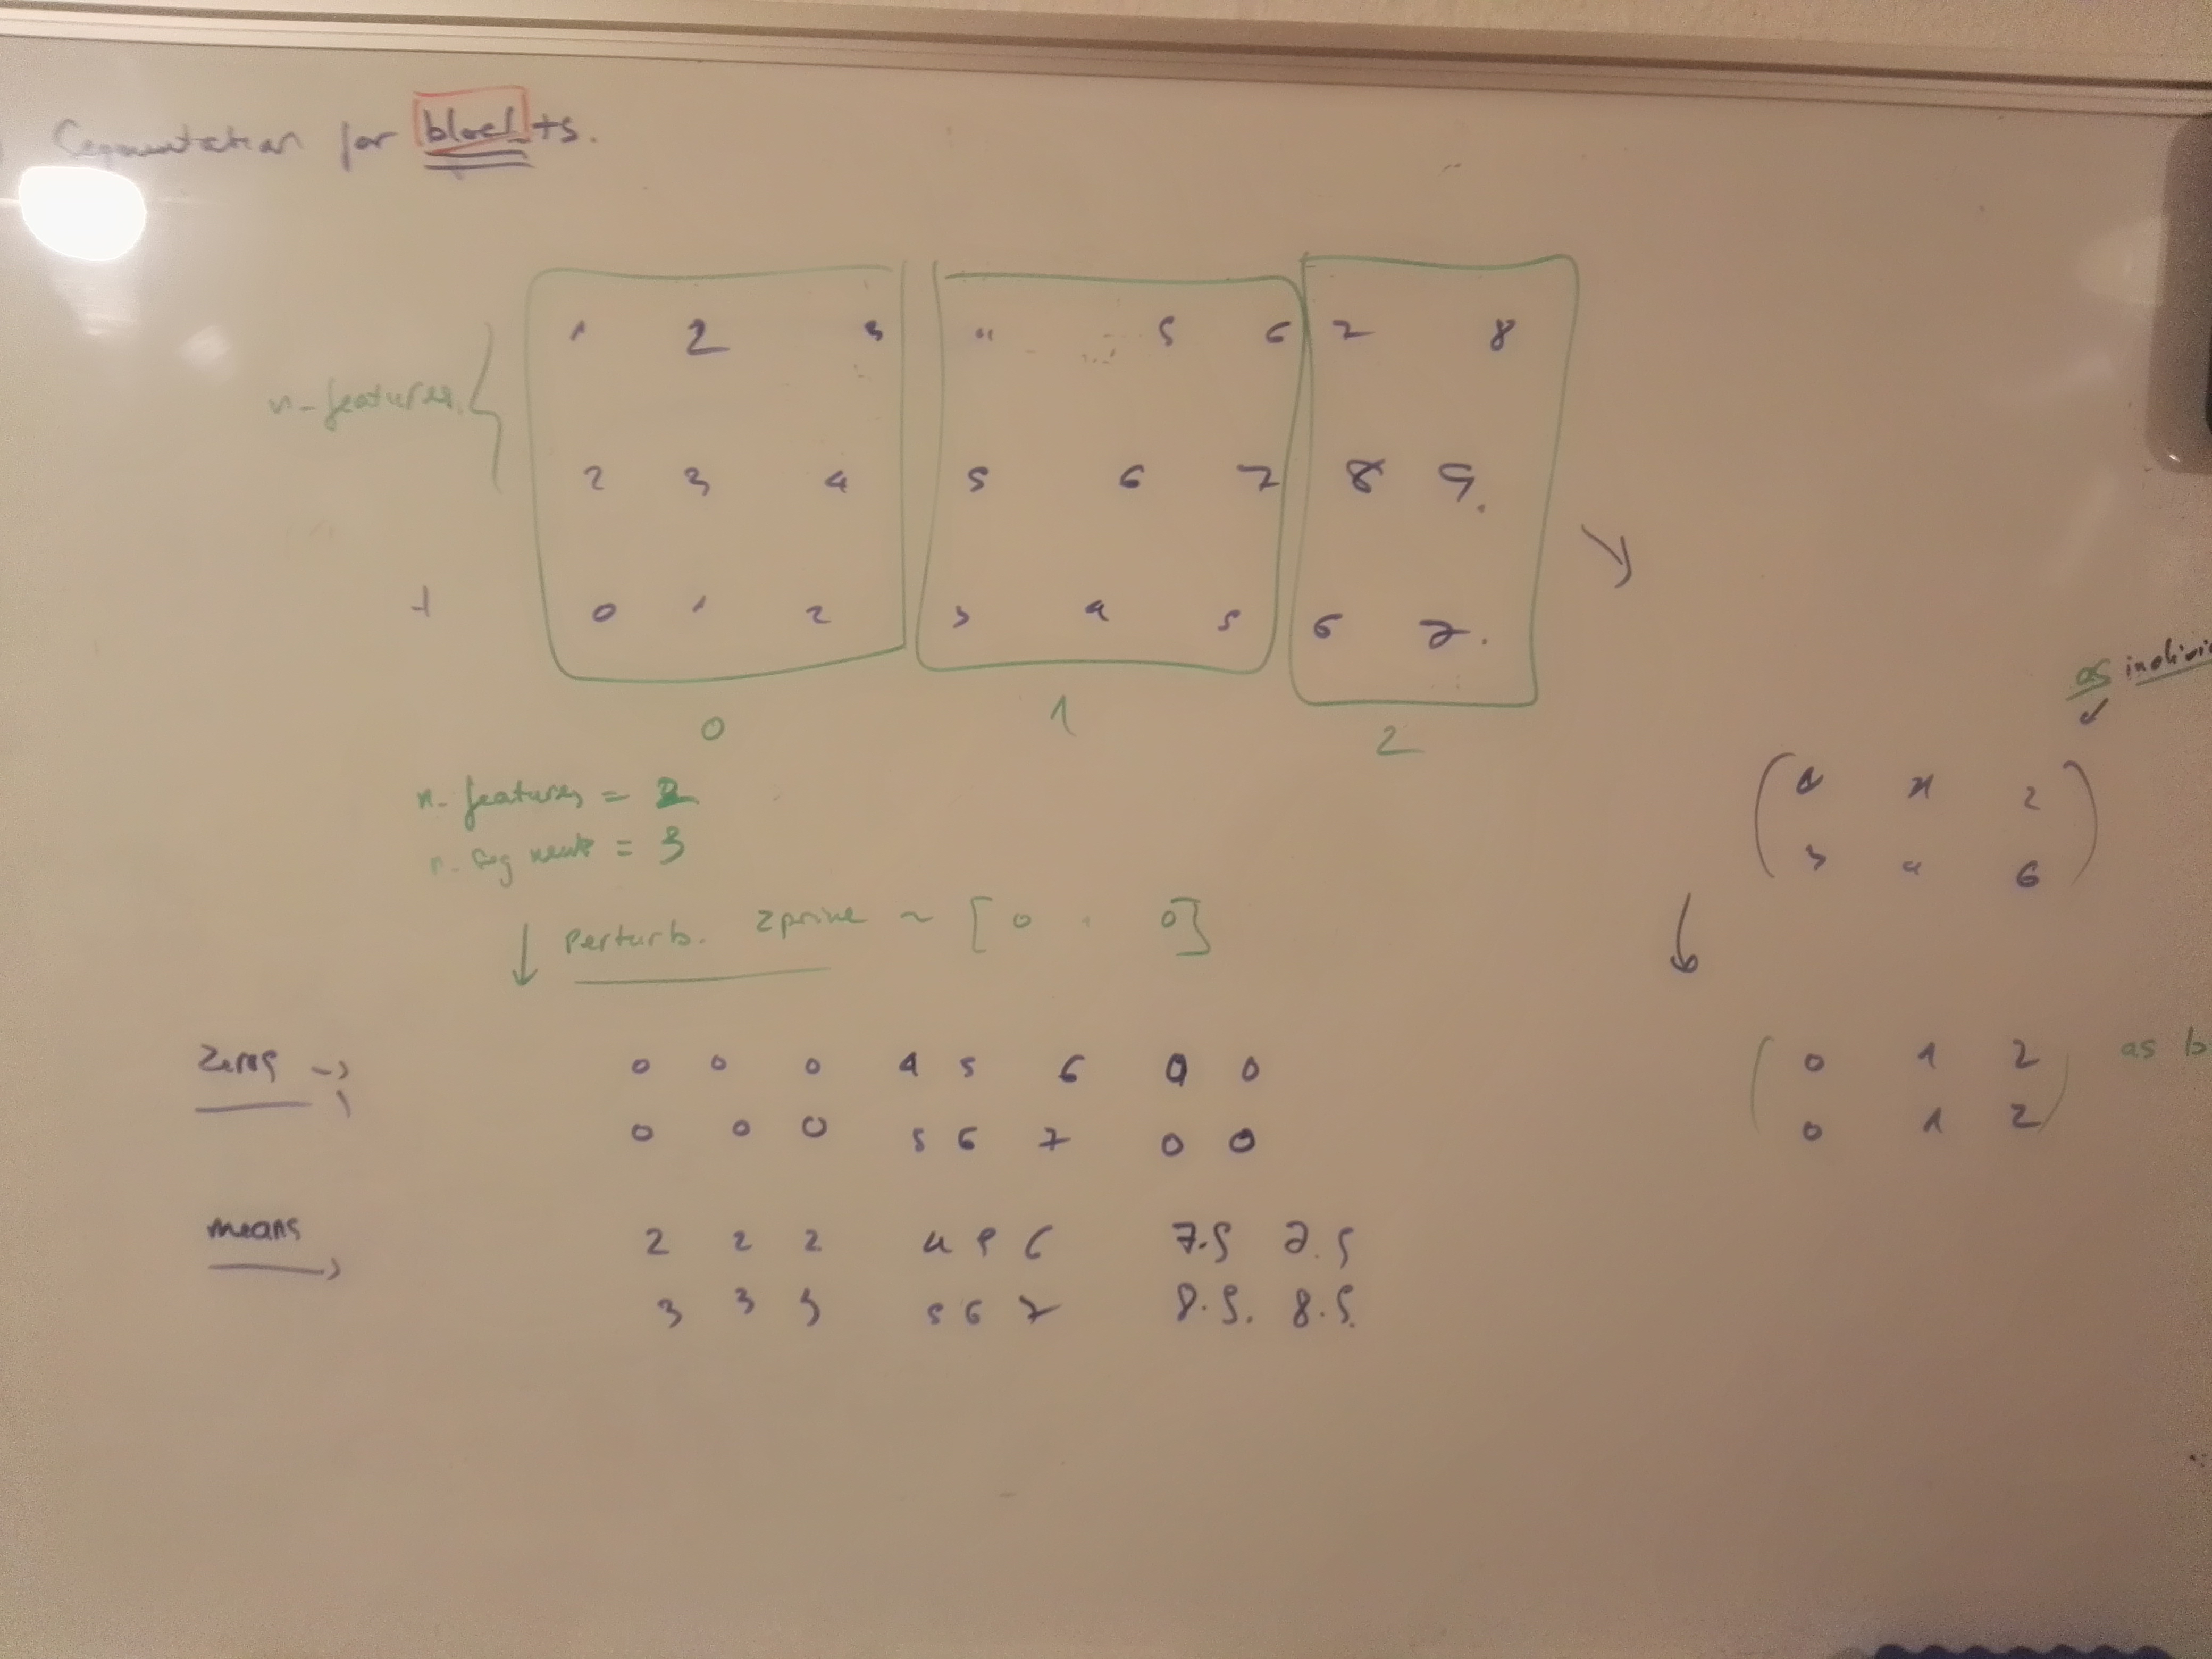 Segmentation for block ts.
1 2 3 4 5 6 7 8
n-features
2 3 4 5 6 7 8 9.
t 0 1 2 3 4 5 6 7.
0 1 2
n-features = 2
n. segment = 3
perturb. zprime ~ [0 1 0]
zeros → 0 0 0 4 5 6 0 0
0 0 0 5 6 7 0 0
means → 2 2 2 4 5 6 7.5 7.5
3 3 3 5 6 7 8.5. 8.5.
as
0 1 2
3 4 6
0 1 2 as b
0 1 2